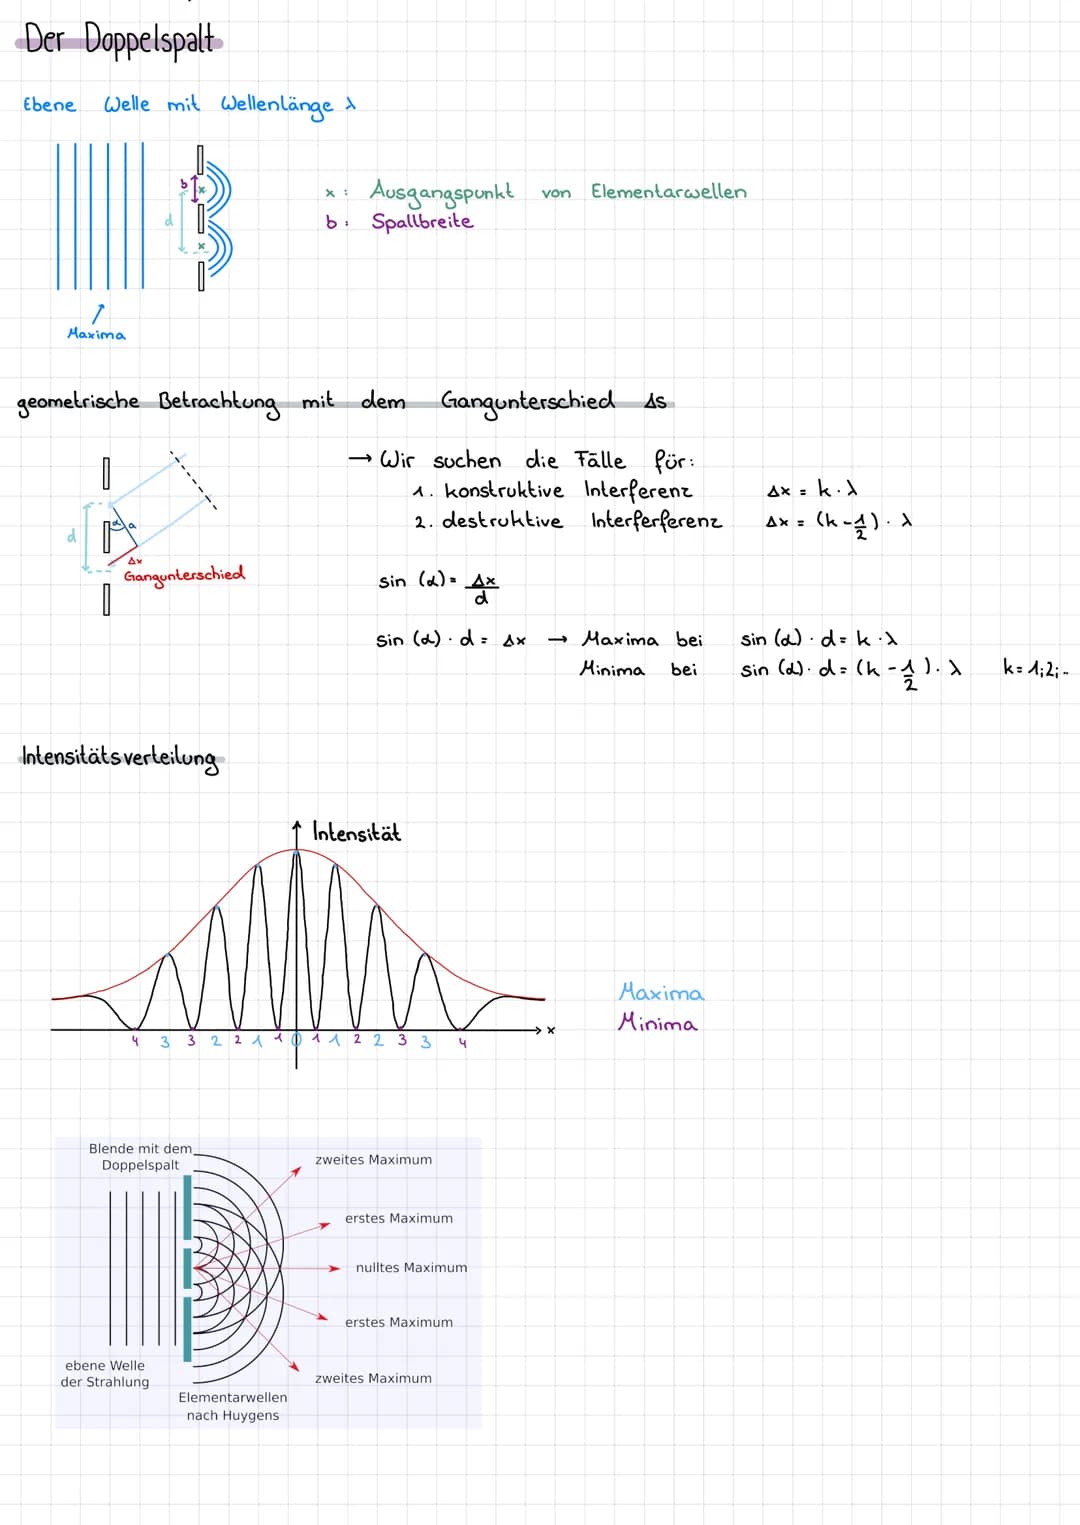 Der Doppelspalt
Ebene Welle mit Wellenlänge λ
b
x
d
x
x : Ausgangspunkt von Elementarwellen
b : Spaltbreite
Maxima
geometrische Betrachtung mit dem Gangunterschied Δs
→ Wir suchen die Fälle für:
1. konstruktive Interferenz Δx = k · λ
2. destruktive Interferferenz Δx = (k - 1/2) · λ
d
α
a
Δx
Gangunterschied
sin (α) = Δx/d
sin (α) · d = Δx → Maxima bei sin (α) · d = k · λ
Minima bei sin (α) · d = (k - 1/2) · λ k = 1;2;..
Intensitätsverteilung
Intensität
x
4 3 3 2 2 1 1 0 1 1 2 2 3 3 4
Maxima
Minima
Blende mit dem
Doppelspalt
zweites Maximum
erstes Maximum
nulltes Maximum
erstes Maximum
zweites Maximum
ebene Welle
der Strahlung
Elementarwellen
nach Huygens